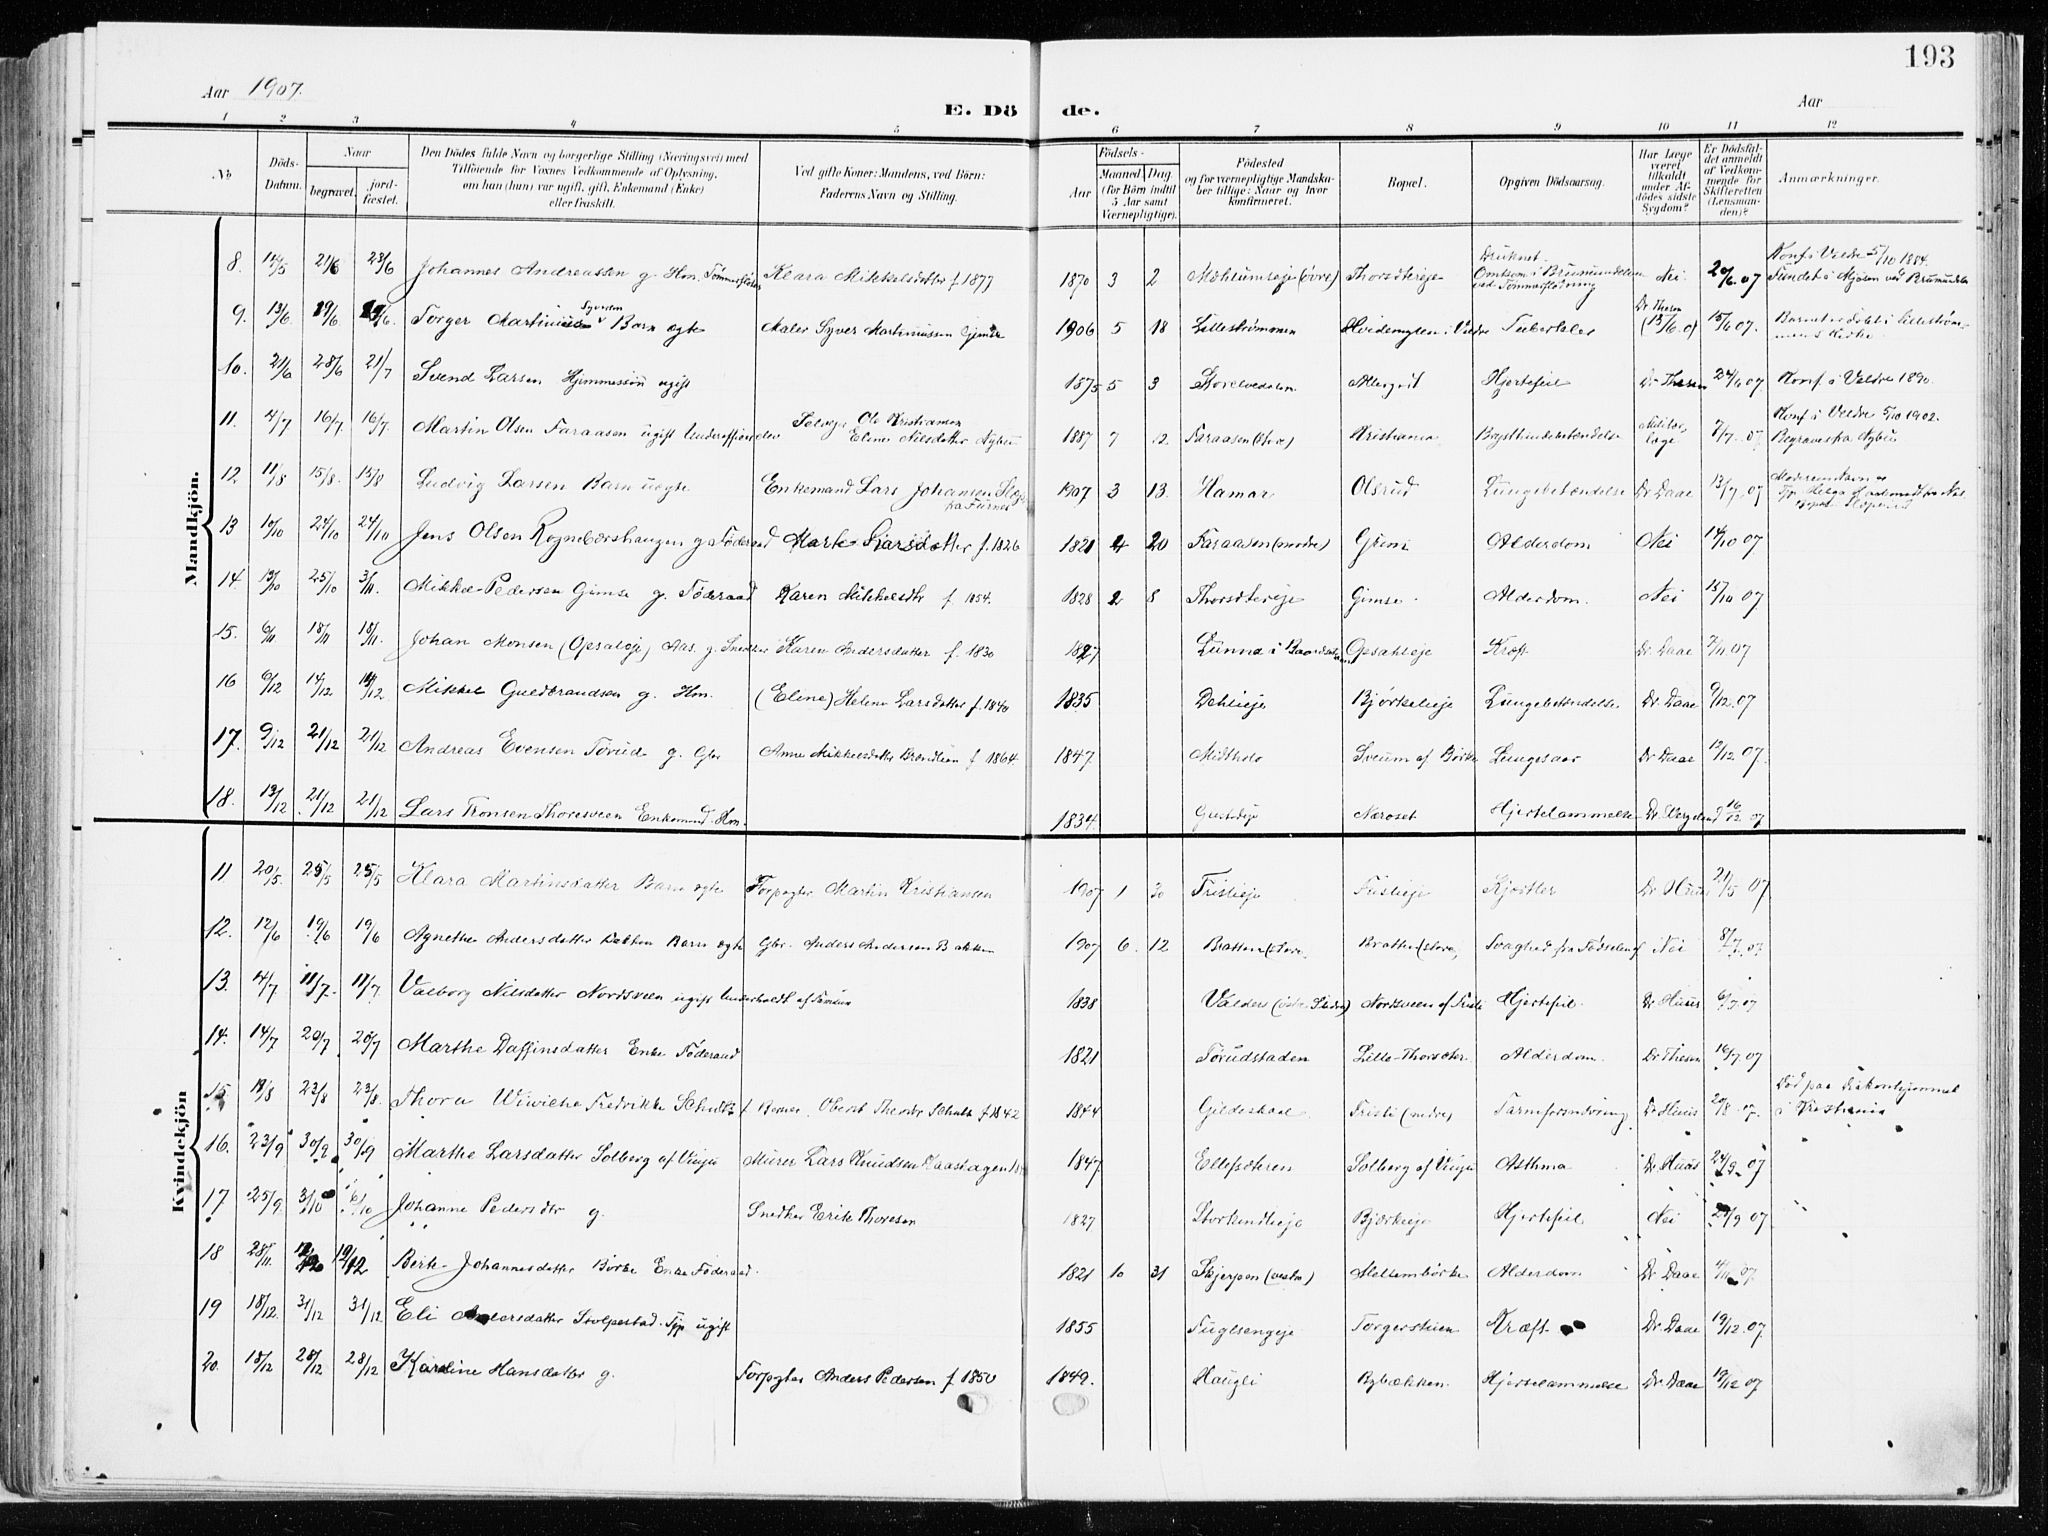 193
Aar 1907.
Aar
E. Dö de.
1 2 3 4 5 6 7 8 9 10 11 12
No
Döds-Datum.
Naar
begravet.
jord-fæstet.
Den Dödes fulde Navn og borgerlige Stilling (Næringsvei) med
Tilföiende for Voxnes Vedkommende af Oplysning,
om han (hun) var ugift, gift, Enkemand (Enke)
eller fraskilt.
Ved gifte Koner: Mandens, ved Börn:
Faderens Navn og Stilling.
Födsels-
Aar
Maaned Dag.
(for Börn indtil
5 Aar samt
Værnepligtige).
Födested
og for værnepligtige Mandska-
ber tillige: Naar og hvor
konfirmeret.
Bopæl.
Opgiven Dödsaarsag.
Har Læge
været
tilkaldt
under Af-
dödes sidste
Sygdom?
Er Dödsfal-
det anmeldt
af Vedkom-
mende for
Skifteretten
(Lensman-
den)?
Anmærkninger.
Mandkjön.
8. 14/5 21/6 23/6 Johannes Andreassen g. Hm. Tømmerfløder Klara Mikkelsdatter f 1877 1870 3 2 Mæhlumseje (övre) Thorsæterje Druknet. Omkom i Brumundelven ved Tømmerflødning Nei 20/6.07 Konf i Veldre 5/10 1884. Fundet i Mjösen ved Brumundelv
9. 13/6 19/6 19/6. Torger Martinius Syversen Barn ægte Maler Syver Martiniussen Gjemse 1906 5 18 Lilleströmmen Hvidemyren i Veldre Tuberkler Dr Thesen (13/6.0) 15/6 07. Barnet er döbt i Lilleström-
mens Kirke.
10. 21/6 28/6 21/7 Svend Larsen Hjemmesön ugift 1875 5 3 Storelvedalen Allergvil Hjertefeil Dr. Thesen 24/6 07 Konf i Veldre 1890.
11. 4/7 16/7 16/7. Martin Olsen Faraasen ugift Underofficerelev Ole Kristiansen Eline Nilsdatter Nybu 1887 7 12 Faraasen (store) Kristiania Brysthindebetændelse Militær-læge 7/7.07 Konf i Veldre 5/10 1902. Begravet fra Nybu
12 11/8 15/8. 15/8 Ludvig Larsen Barn uægte Enkemand Lars Johansen fra Furnes 1907 3 13. Hamar Olsrud Lungebetændelse Dr. Daae 13/7.07 Moderens Navn er
13 10/10 24/10 24/10 Jens Olsen Rognebærshaugen g. Föderaad Marte Larsdatter f. 1826 1821 4 20 Faraasen (nedre) Grimi Alderdom Nei 14/10 07
14. 13/10 25/10 3/11. Mikkel Pedersen Gimse g. Föderaad Karen Mikkelsdtr f. 1854. 1828 2 8 Thorsætereje Gimse. Alderdom. Nei 15/10 07
15. 6/11 18/11 18/11. Johan Monsen (Opsaleje) Aas. g. Snedker Karen Andersdatter f. 1830 1827 Lunna i Baardseth Opsahleje Kræft Dr. Daae 7/11.07
16 6/12 14/12 14/12 Mikkel Guldbrandsen g. Hm. (Eline) Helene Larsdatter f. 1840 1835 Dehlieje Bjørkelieje Lungebetændelse Dr. Daae 9/12.07
17. 9/12 21/12 21/12 Andreas Evensen Torud g. Gbr Anne Mikkelsdatter Brændlien f 1864. 1847 Midtholo Sveum af Börke Lungesaar Dr Daae 12/12.07.
18. 13/12 21/12 21/12 Lars Tronsen Thoresveen Enkemand. Hm. 1834. Næroset Hjertelammelse Dr. Vergeland 16/12 07
Kvindekjön
11 20/5. 25/5 25/5 Klara Martinsdatter Barn ægte Forpagter Martin Kristiansen 1907 1 30 Fristieje Fristieje Kjertler Dr Huus 21/5 07
12. 12/6 19/6 19/6 Agnethe Andersdatter Bakken Barn ægte Gbr. Anders Andersen Bakken 1907 6. 12 Bratten (store) Bratten (store) Svaghed fra Födselen af Nei 8/7.07
13. 4/7 11/7. 11/7. Valborg Nilsdatter Nordsveen ugift Underholdt af Familien 1838 Valders (östre Slidre) Nordsveen af Fristi Hjertefeil. Dr. Huus 6/7 07
14. 14/7 20/7 20/7 Marthe Daffinsdatter Enke Föderaad 1821 Torudstaden Lille-Thorsæter. Alderdom. Dr Thesen 16/7 07
15 19/8 23/8 23/8. Thora Wiwicke Fredrikke Schultz f Berner Oberst Theodor Schultz f 1842 1844 Gildeskaal Fristi (nedre) Tarmforsnevring Dr Huus 20/8.07. Död paa Diakonhjemmet
i Kristiania
16. 23/9 30/9 30/9 Marthe Larsdatter Solberg af Vinju Murer Lars Knudsen Kaashagen 1847 Ellefsæteren Solberg af Vinju Asthma Dr. Huus 24/9.07
17 25/9. 3/10 6/10 Johanne Pedersdtr g. Snedker Erik Thoresen 1827 Storkindlieje Bjørkeieje Hjertefeil Nei 28/9 07
18 28/11. 12/12 12/12 Berte Johannesdatter Börke Enke Föderaad. 1821 10 31 Skjerpen (vestre) Mellembörke Alderdom Dr. Daae 07.
19 18/12. 31/12 31/12 Eli Andersdatter Stolpestad. Tjp ugift 1855 Fuglsengeje Torgerstuen Kræft Dr. Daae 19/12.07
20. 18/12 28/12 28/12 Karoline Hansdatter g. Forpagter Anders Pedersen f 1850 1849. Haugli Bybækken. Hjertelammelse Dr. Daae 19/12 07